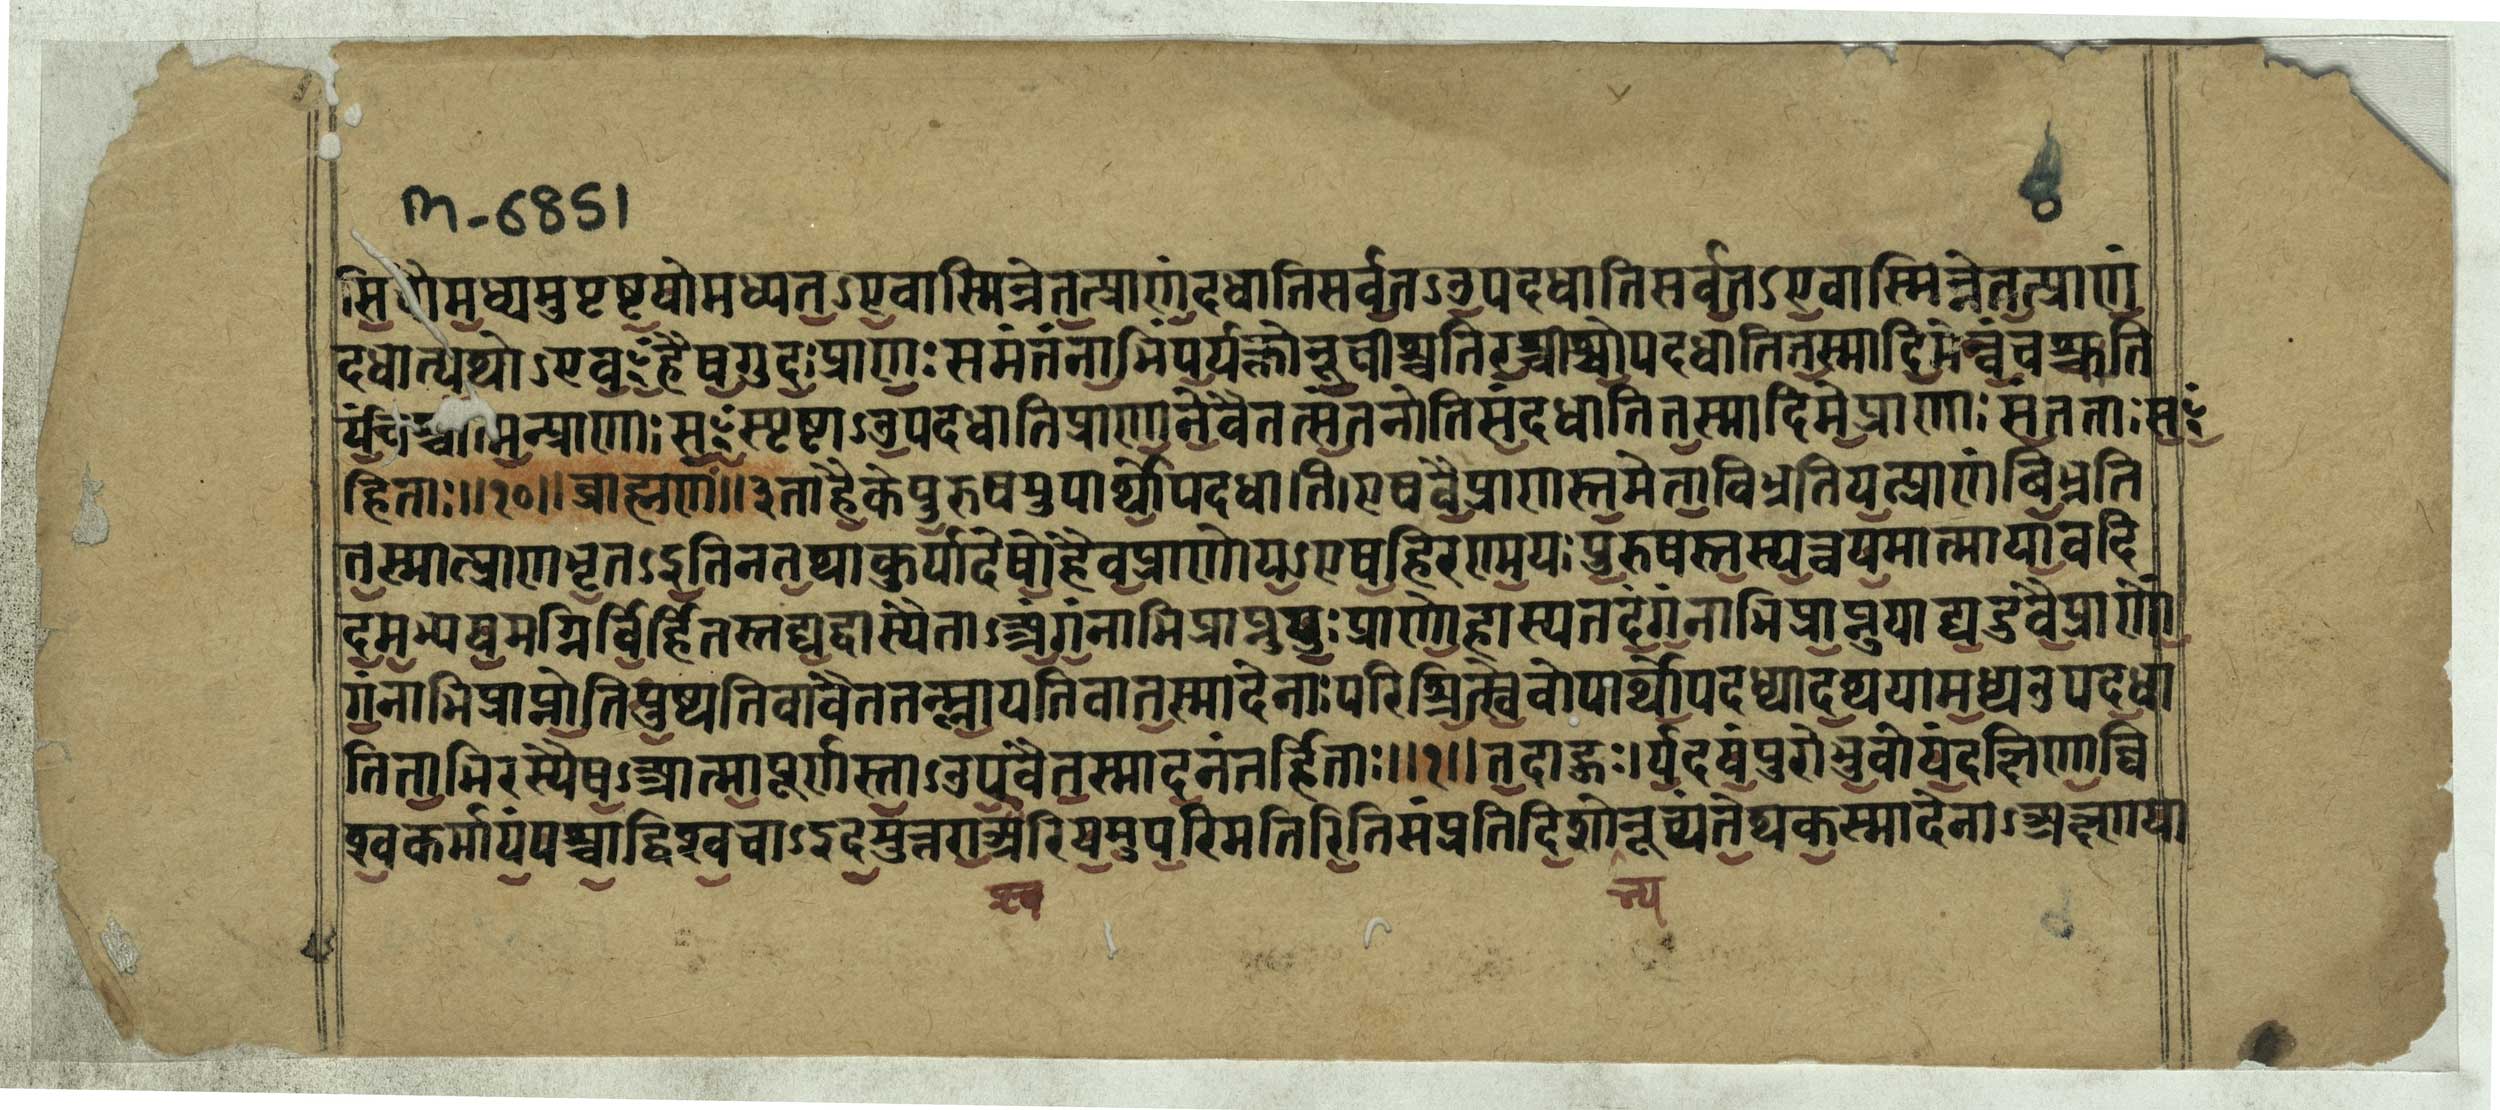 M-6851
मि थीमध्यमुप्टष्टयोमध्यतऽएवास्मिन्नेतत्प्राणंदधातिसर्वतऽउपदधातिसर्वतऽएवास्मिन्नेतत्प्राणं
दधात्यथोऽएवꣳहैषगुदःप्राणःसमंतंनाभिंपर्यक्नोनूचीश्चतिरश्चीश्चोपदधातितस्मादिमेन्वंचश्चति
र्यंचश्चात्मन्प्राणाःसꣳस्पृष्टाऽउपदधातिप्राणानेवैतत्संतनोतिसंदधातितस्मादिमेप्राणाःसंतताःसꣳ
हिताः॥१०॥ब्राह्मणं॥३ताहैकेपुरुषमुपार्प्योपदधाति।एषवैप्राणस्तमेताबिभ्रतियत्प्राणंबिभ्रति
तस्मात्प्राणभृतऽइतिनतथाकुर्यादेषोहैवप्राणोयऽएषहिरण्मयःपुरुषस्तस्यत्वयमात्मायावदि
दमभ्ययमग्निर्विर्हितस्तद्यद्वास्यैताऽअंगंनाभिप्राप्नुयुःप्राणोहास्यतदंगंनाभिप्राप्नुयाद्यदुवैप्राणों
गंनाभिप्राप्नोतिशुष्यतिवावैततन्म्लायतिवातस्मादेनाःपरिश्रित्स्वेवोपार्प्योपदध्यादथयामध्यउपदधा
तिताभिरस्यैषऽआत्मापूर्णस्ताऽउपवैतस्मादनंतर्हिताः॥१॥तदाहुः।र्यदयंपुरोभुवोयंदक्षिणावि
श्वकर्मायंपश्चाद्विश्वव्यचाऽइदमुत्तरात्स्वरियमुपरिमतिरितिसंप्रतिदिशोनूच्यंतेथकस्मादेनाऽअक्ष्णया
त्स्व
च्य